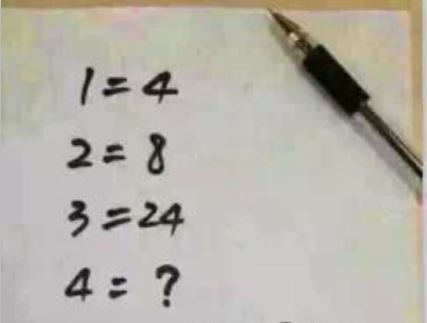 1=4
2=8
3=24
4=?